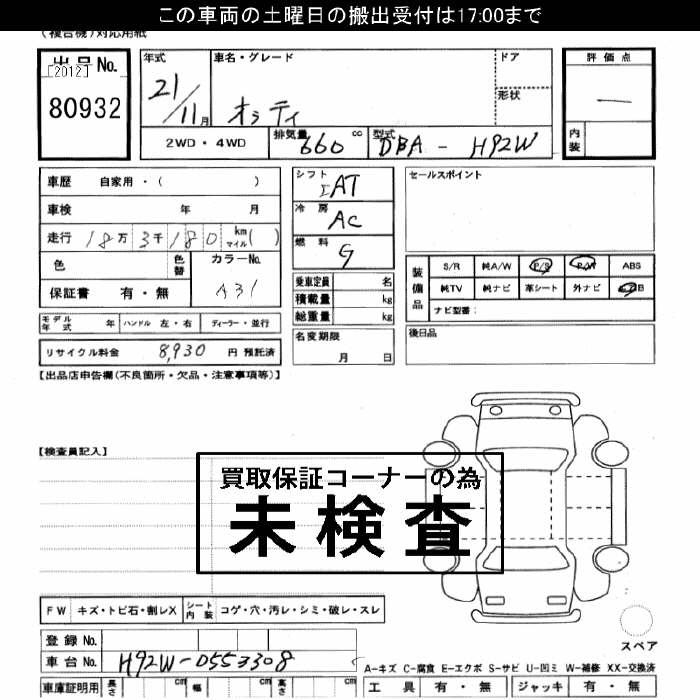 この車両の土曜日の搬出受付は17:00まで
(複合機)対応用紙
出品No.
[2012]
80932
年式
21/11月
車名・グレード
オッティ
ドア
形状
評価点
―
内装
2WD・4WD
排気量 660 cc
型式 DBA-H92W
車歴 自家用・( )
車検 年 月
走行 18万3千180 km マイル( )
色
色替
カラーNo.
A31
保証書 有・無
シフト
IAT
冷房
AC
燃料
G
乗車定員 名
積載量 kg
総重量 kg
セールスポイント
装備品
S/R 純A/W P/S P/W ABS
純TV 純ナビ 革シート 外ナビ
ナビ型番:
モデル年式 年 ハンドル 左・右 ディーラー・並行
名変期限
月 日
後日品
リサイクル料金 8,930 円 預託済
【出品店申告欄(不良箇所・欠品・注意事項等)】
【検査員記入】
買取保証コーナーの為
未検査
FW キズ・トビ石・割レX
シート内装 コゲ・穴・汚レ・シミ・破レ・スレ
スペア
登録No.
車台No. H92W-0553308
A-キズ C-腐食 E-エクボ S-サビ U-凹ミ W-補修 XX-交換済
車庫証明用 長さ cm 幅 cm 高さ cm
工具 有・無 ジャッキ 有・無